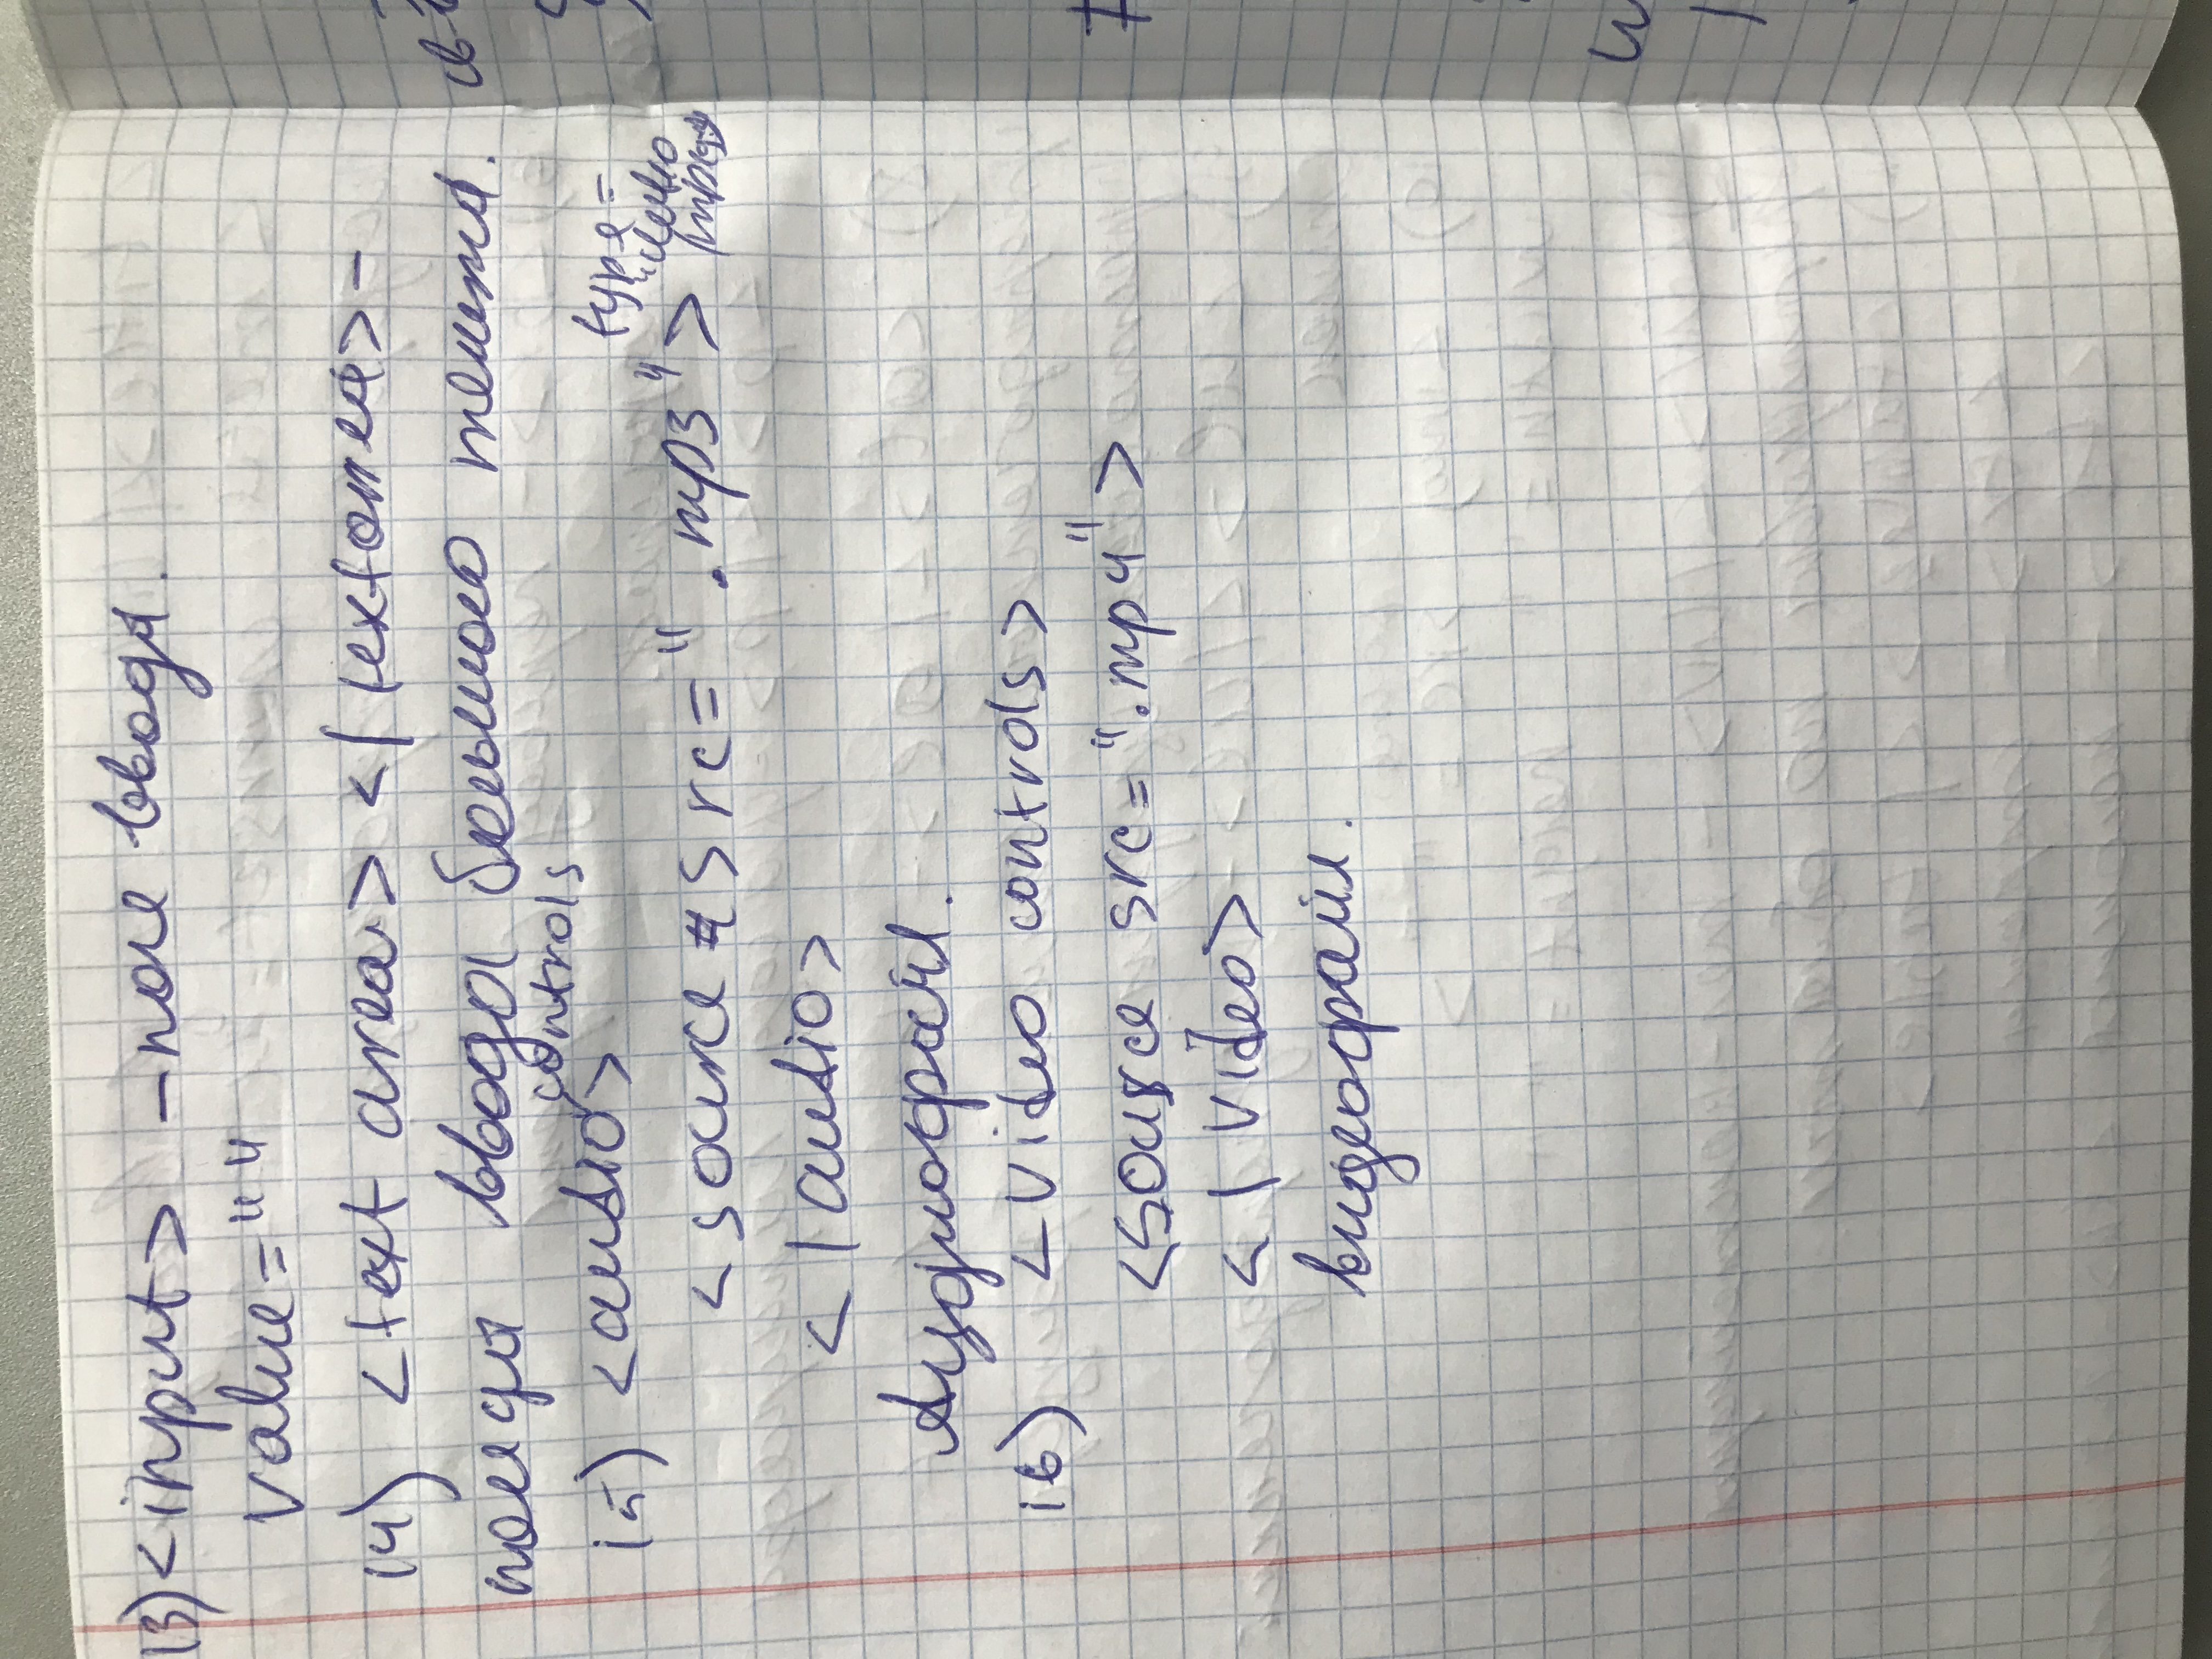 13) <input> – поле ввода.
value=" "
14) <text area> </textarea> –
поле для ввода большого текста.
15) <audio controls>
<source src=" .mp3"> type= "audio/mpeg"
</audio>
Аудиофайл.
16) <video controls>
<source src=".mp4">
</video>
видеофайл.